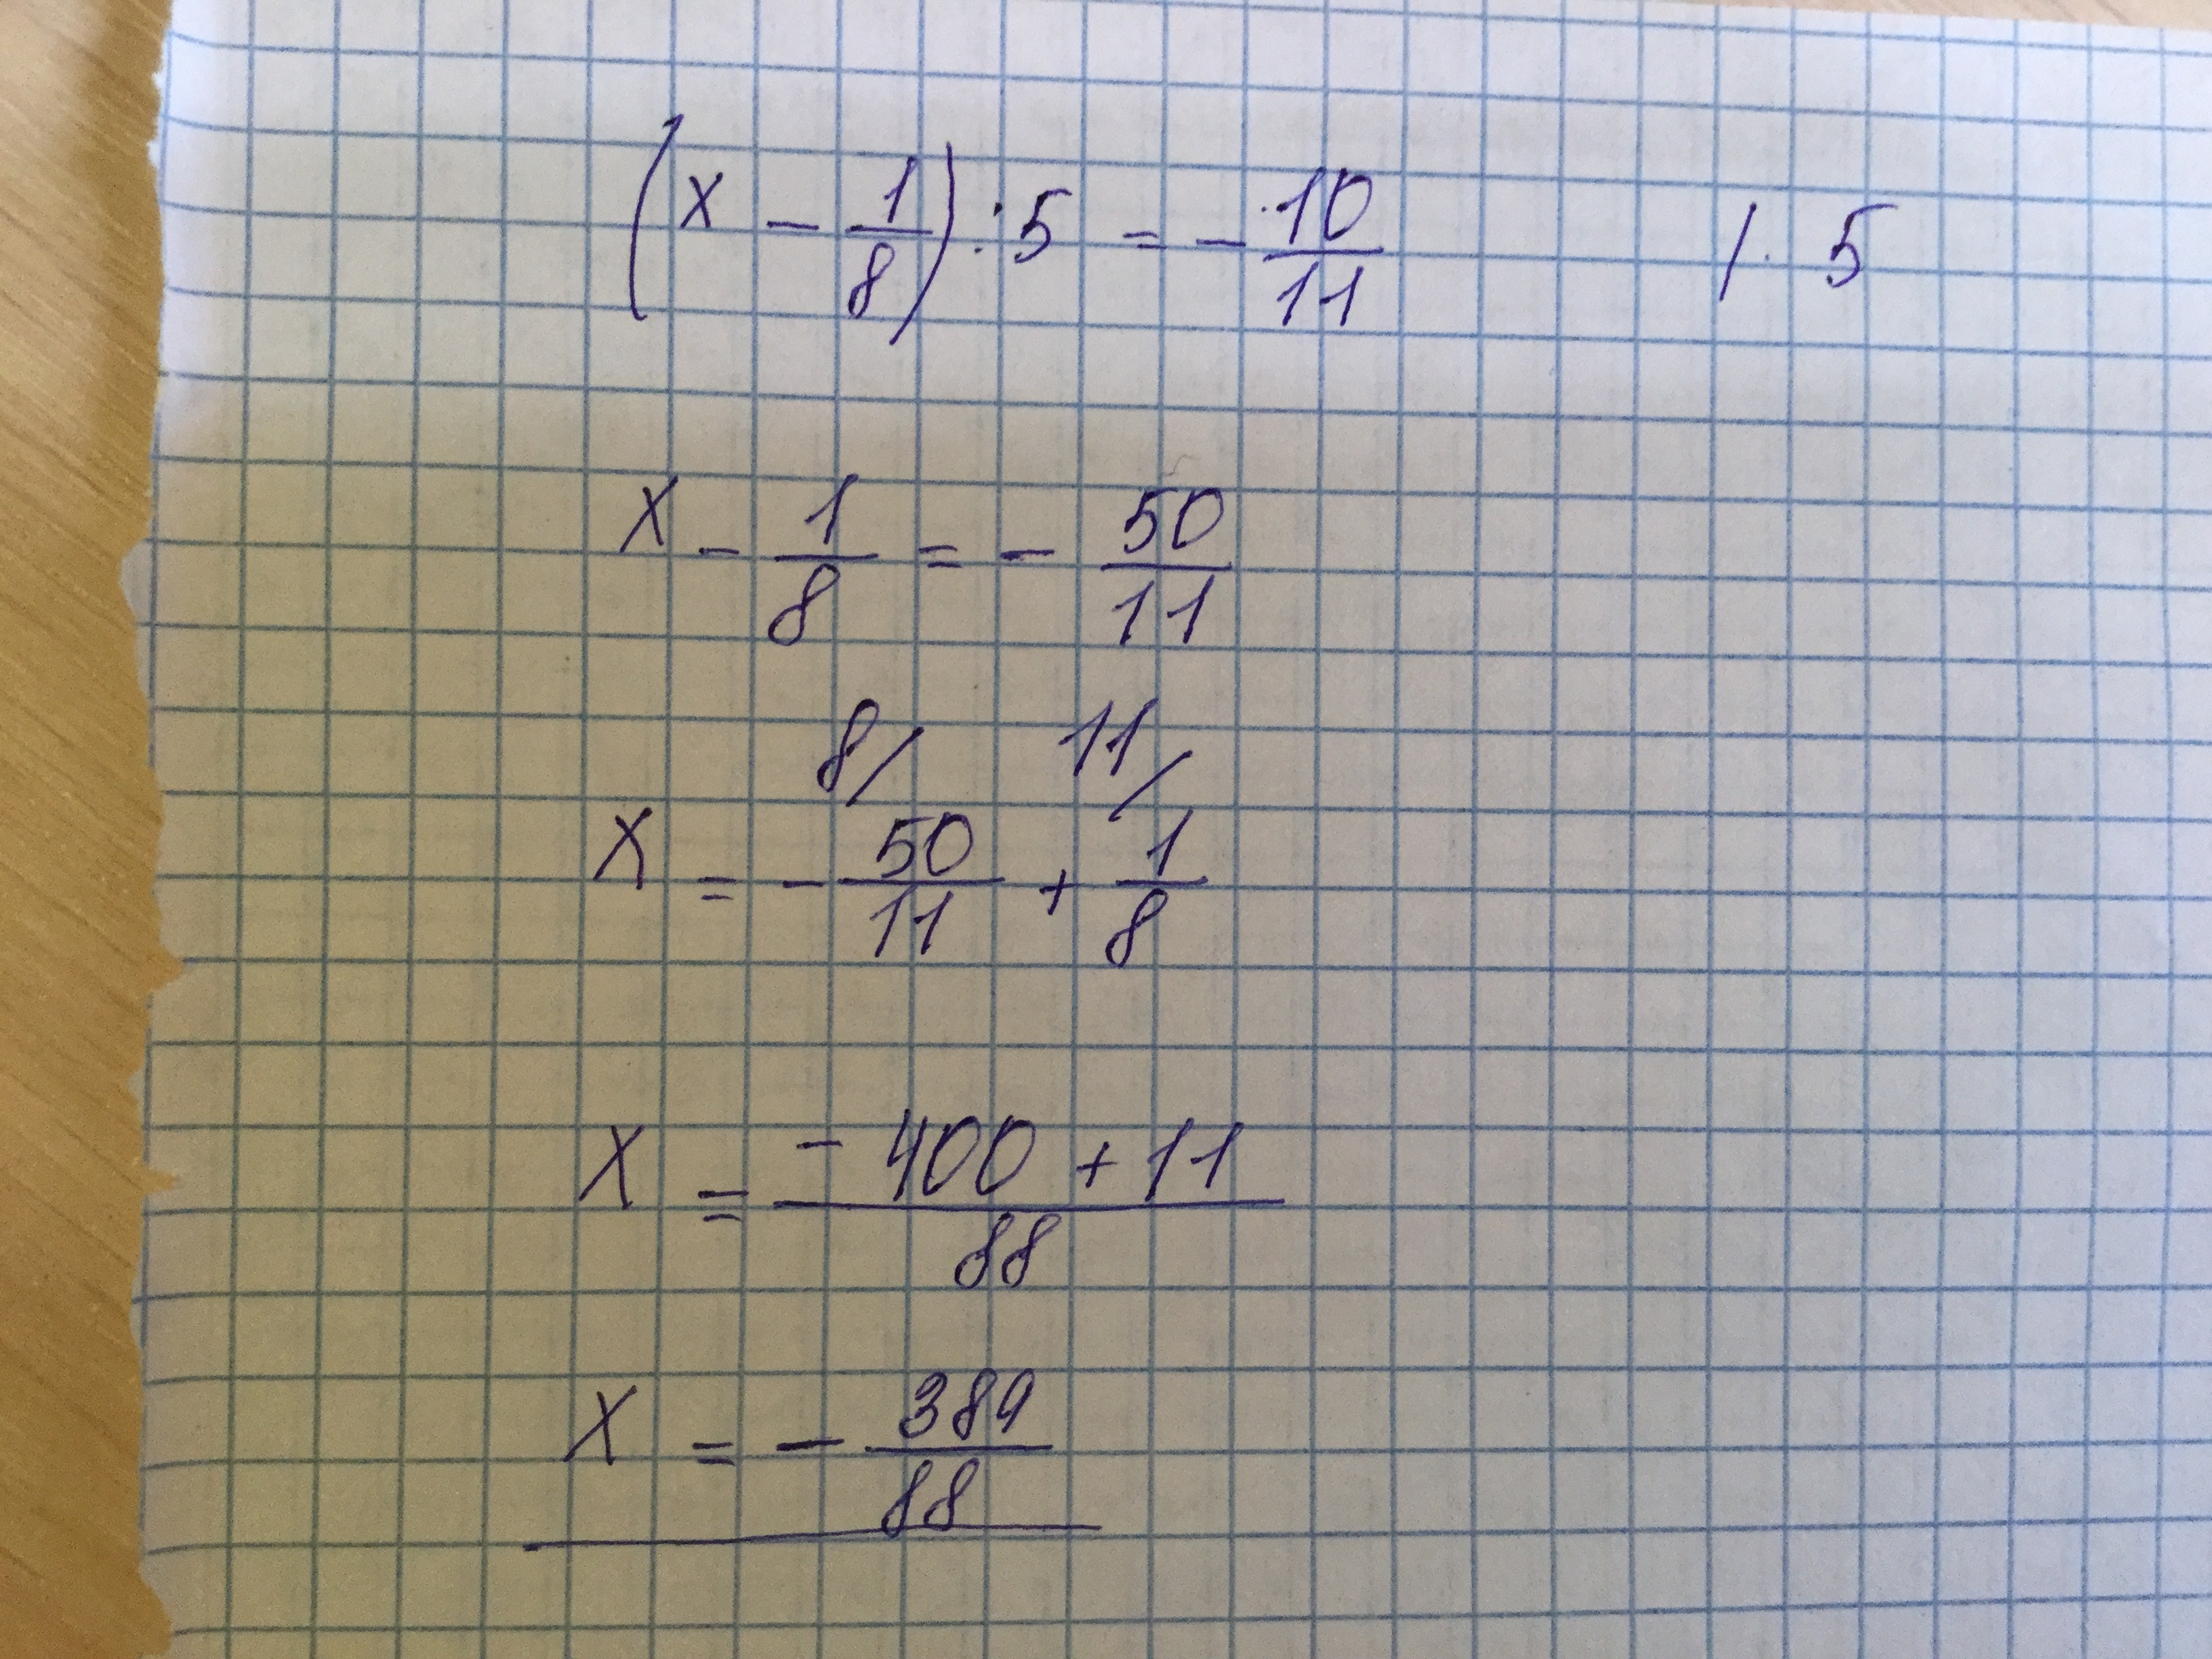 (x - 1/8) : 5 = - 10/11 | · 5
x - 1/8 = - 50/11
8/ 11/
x = - 50/11 + 1/8
x = (- 400 + 11)/88
x = - 389/88